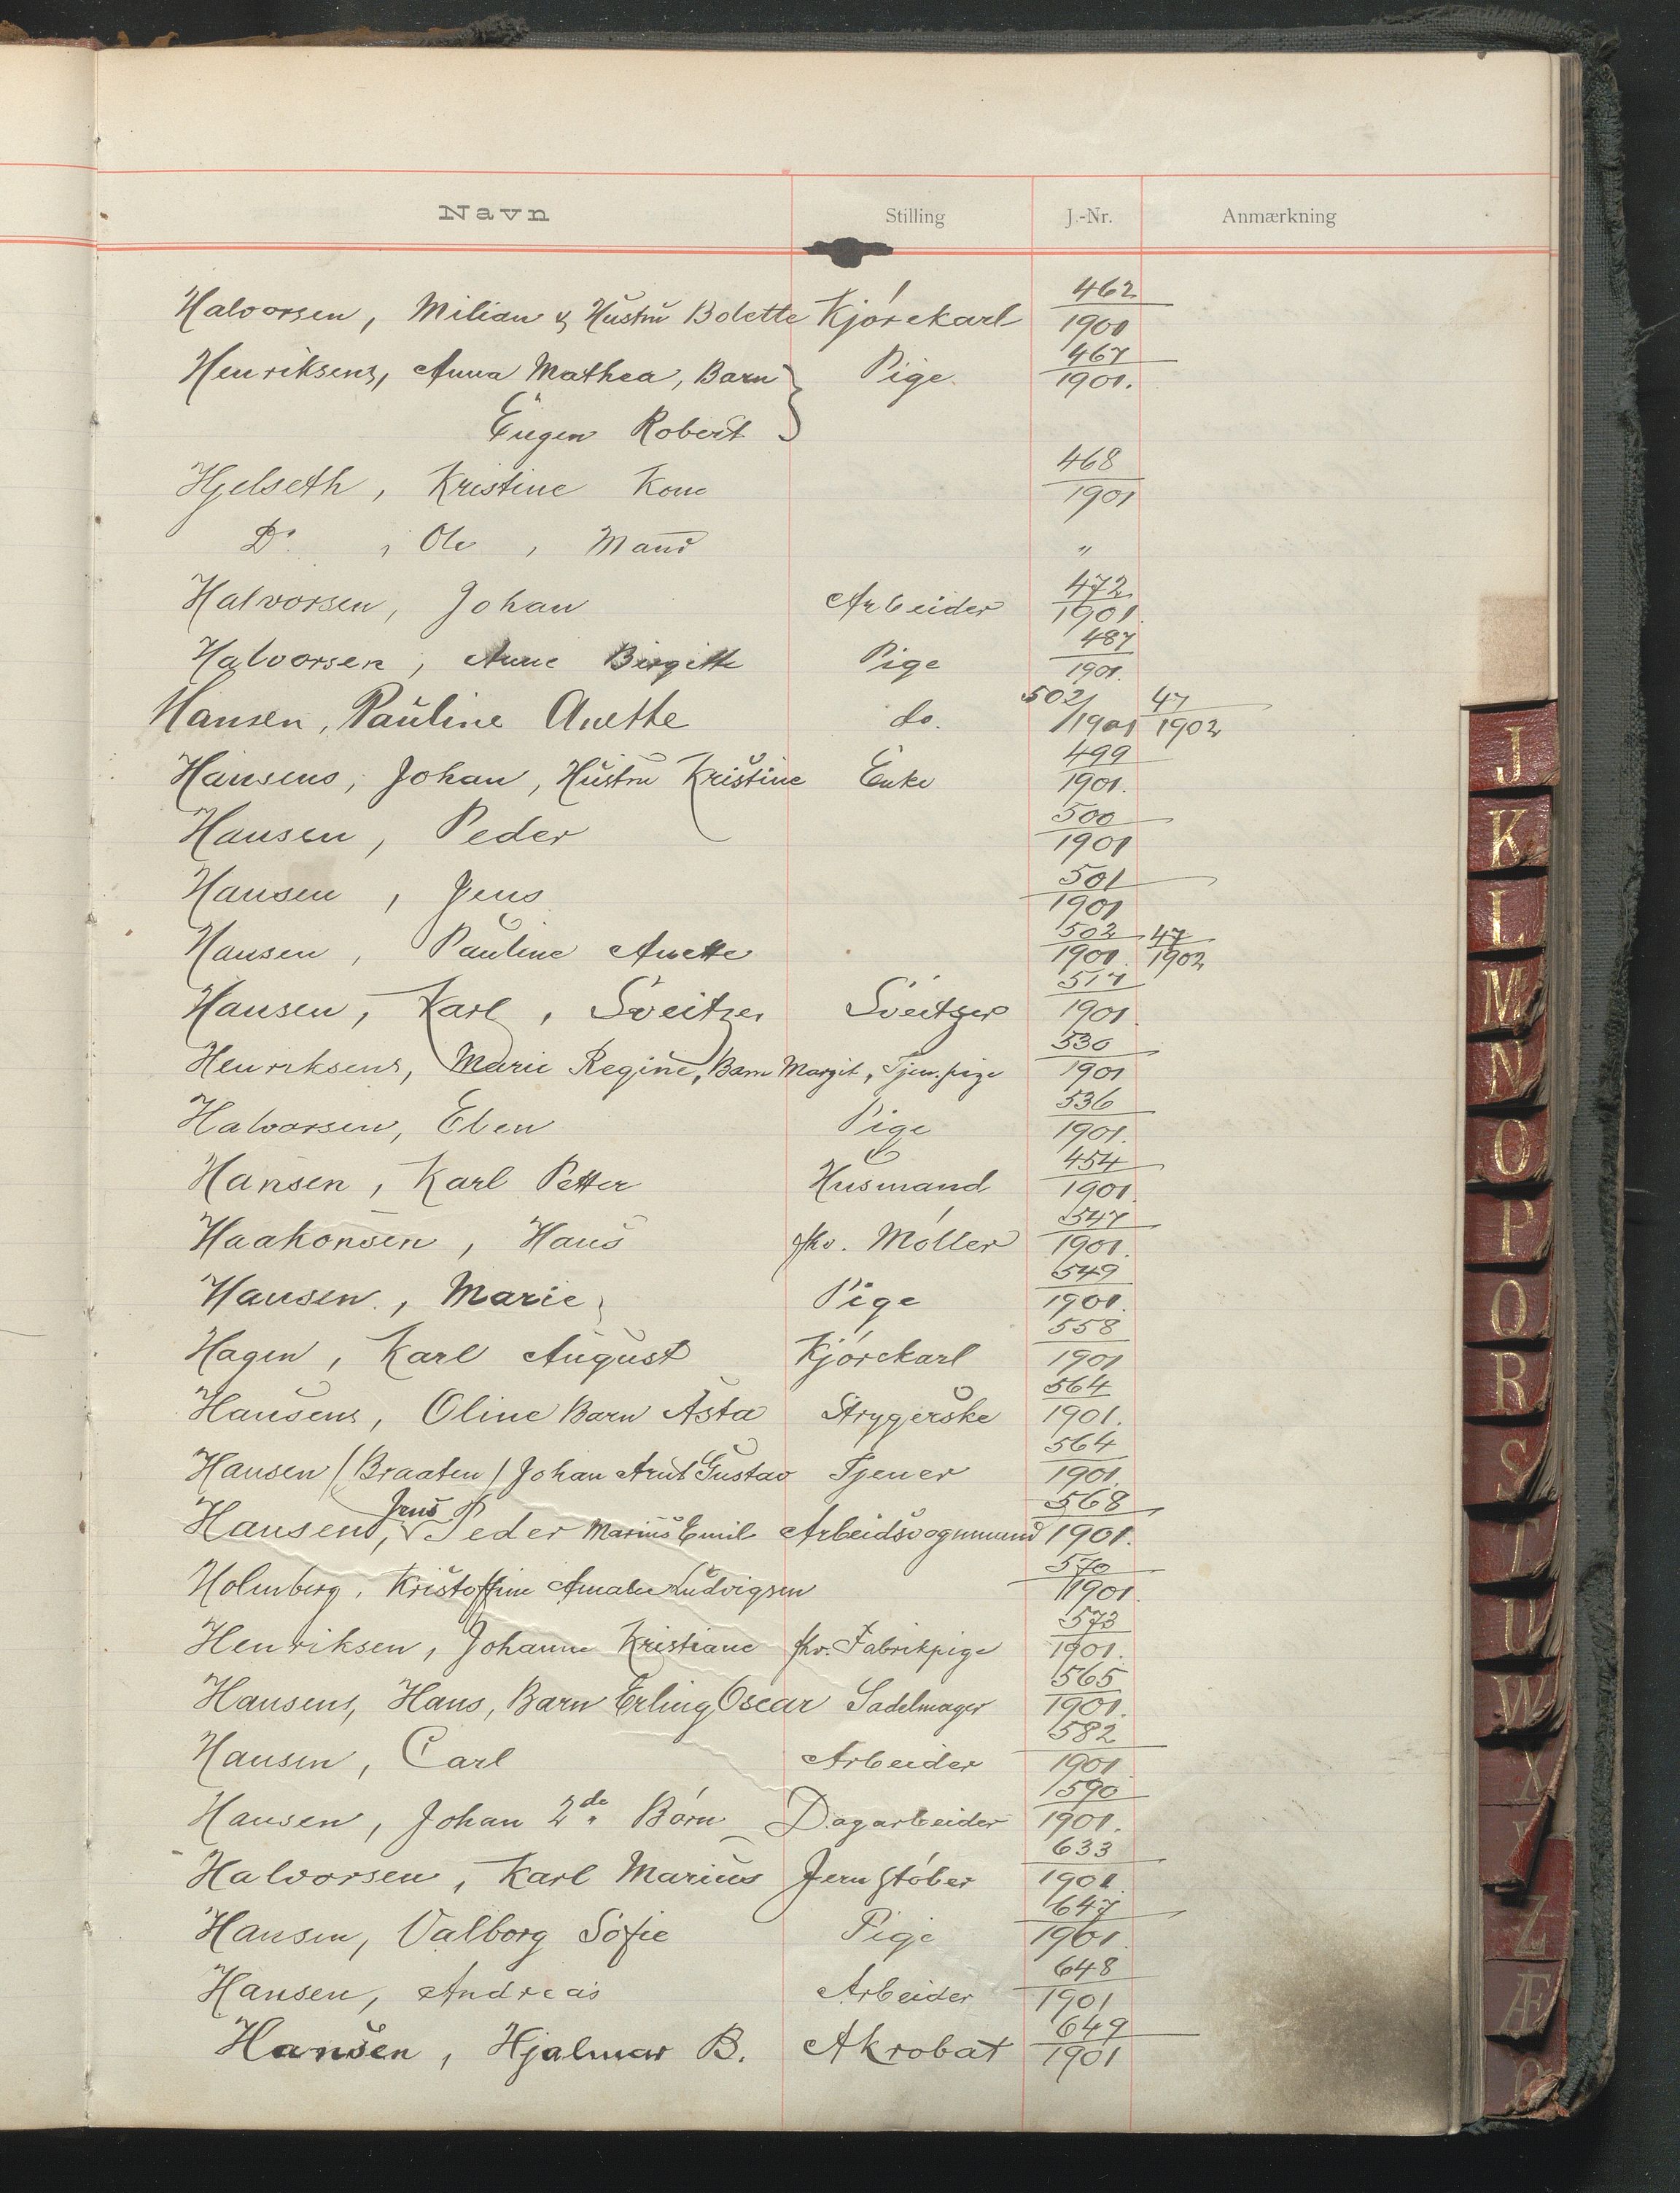 Navn Stilling J.-Nr. Anmærkning
Halvorsen, Milian & Hustru Bolette Kjørekarl 462/1901
Henriksens, Anna Mathea, Barn Pige 467/1901.
Eugen Robert
Hjelseth, Kristine Kone 468/1901
Do. , Ole , Mand "
Halvorsen, Johan Arbeider 472/1901
Halvorsen, Anne Birgitte Pige 487/1901.
Hansen, Pauline Anette do. 502/1901 47/1902
Hansens, Johan, Hustru Kristine Enke 499/1901.
Hansen, Peder 500/1901
Hansen, Jens 501/1901
Hansen, Pauline Anette 502/1901. 47/1902
Hansen, Karl, Sveitzer Sveitzer 517/1901
Henriksens, Marie Regine, Barn Margit, Tjen.pige 530/1901
Halvorsen, Elen Pige 536/1901.
Hansen, Karl Petter Husmand 454/1901.
Haakonsen, Hans fhv. Møller 547/1901.
Hansen, Marie Pige 549/1901.
Hagen, Karl August Kjørekarl 558/1901
Hansens, Oline Barn Asta Strygerske 564/1901.
Hansen (Braaten) Johan Arnt Gustav Tjener 564/1901.
Hansen, Jens Peder Marius Emil Arbeidsvognmand 568/1901.
Holmberg, Kristoffine Amalie Ludvigsen 570/1901
Henriksen, Johanne Kristiane fhv. Fabrikpige 573/1901.
Hansens, Hans, Barn Erling Oscar Sadelmager 565/1901.
Hansen, Carl Arbeider 582/1901
Hansen, Johan 2de Børn Dagarbeider 590/1901.
Halvorsen, Karl Marius Jernstøber 633/1901.
Hansen, Valborg Sofie Pige 647/1901.
Hansen, Andreas Arbeider 648/1901
Hansen, Hjalmar B. Akrobat 649/1901
J
K
L
M
N
O
P
Q
R
S
T
U
W
X
Y
Z
Æ
Ø